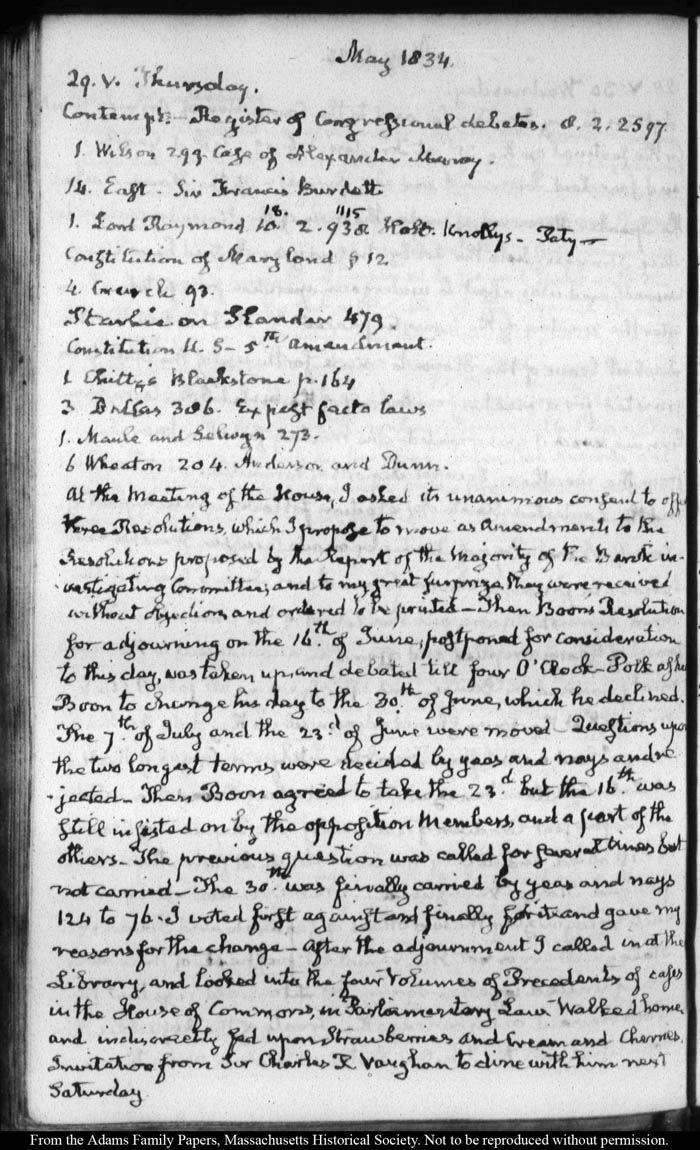 May 1834.
29. V. Thursday.
Contempt:- Register of Congressional debates. 8. 2. 2597
1. Wilson 299. Case of Alexander Murray.
14. East. Sir Francis Burdett
1. Lord Raymond 10. 18. 2. 938 1115 Holt. Knollys - Paty -
Constitution of Maryland p 12.
4. Cranch 93.
Starkie on Slander 479.
Constitution U. S - 5th amendment.
1 Chitty's Blackstone p. 164
3 Dallas 386. Ex post facto laws
1. Maule and Selwyn 273.
6 Wheaton 204. Anderson and Dunn.
At the meeting of the House, I asked its unanimous consent to off
three Resolutions, which I propose to move as Amendments to the
Resolutions proposed by the Report of the Majority of the Bank in-
-vestigating Committee; and to my great surprize, they were received
without objection, and ordered to be printed - Then Boon's Resolution
for adjourning on the 16th of June, postponed for consideration
to this day, was taken up, and debated till four O'Clock - Polk asked
Boon to change his day to the 30th of June, which he declined.
The 7th of July and the 23d of June were moved - Questions upon
the two longest terms were decided by yeas and nays and re
-jected - Then Boon agreed to take the 23d but the 16th was
still insisted on by the opposition Members, and a part of the
others - The previous question was called for several times but
not carried - The 30th was finally carried by yeas and nays
124 to 76. I voted first against and finally for it and gave my
reasons for the change - After the adjournment I called in at the
Library, and looked into the four Volumes of Precedents of cases
in the House of Commons, in Parliamentary Law. Walked home,
and indiscreetly fed upon Strawberries and Cream and Cherries.
Invitation from Sir Charles R Vaughan to dine with him next
Saturday
From the Adams Family Papers, Massachusetts Historical Society. Not to be reproduced without permission.